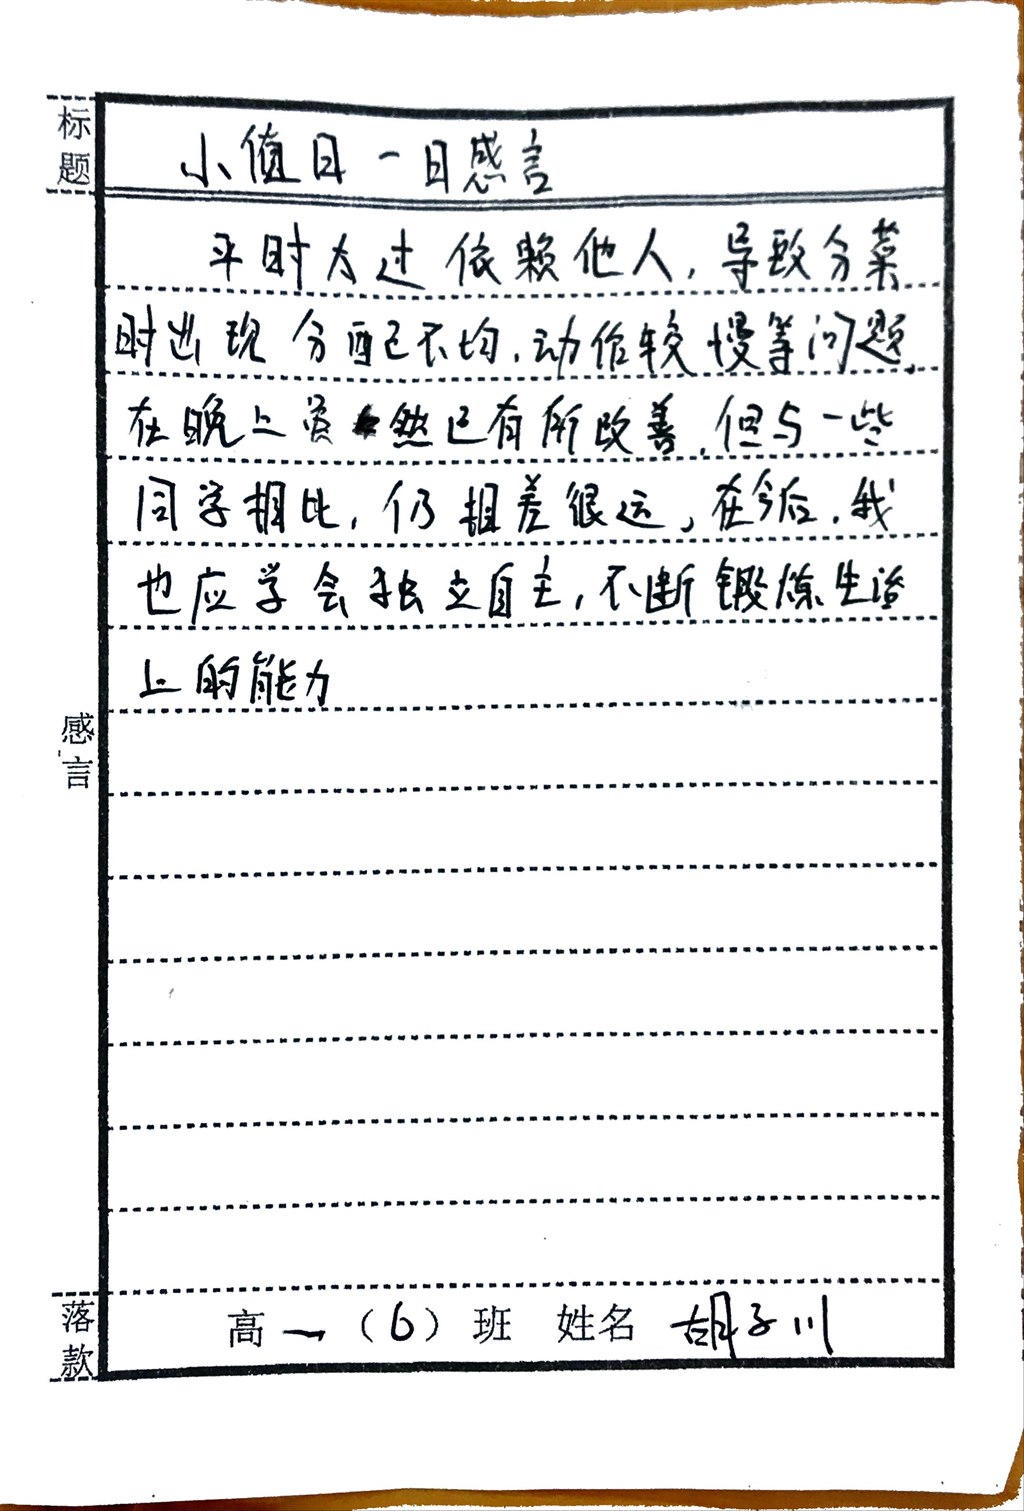 标题
小值日一日感言
平时太过依赖他人，导致分菜
时出现分配不均，动作较慢等问题，
在晚上虽然已有所改善，但与一些
同学相比，仍相差很远，在今后，我
也应学会独立自主，不断锻炼生活
上的能力
感言
落款
高一（6）班 姓名 胡子川